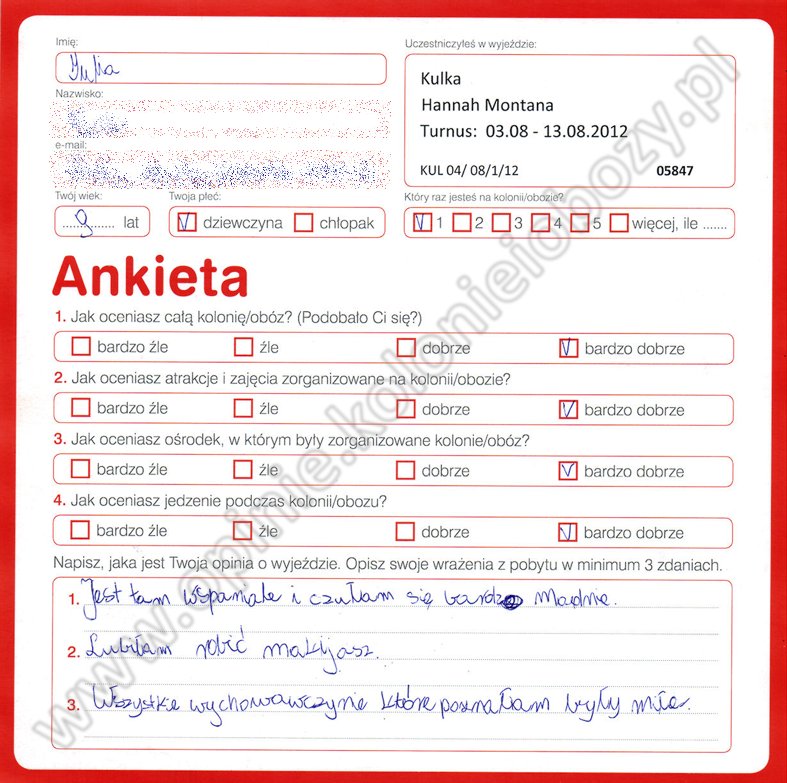 Imię:
Julia
Uczestniczyłeś w wyjeździe:
Kulka
Hannah Montana
Turnus: 03.08 - 13.08.2012
KUL 04/ 08/1/12 05847
Nazwisko:
e-mail:
Twój wiek:
9 lat
Twoja płeć:
dziewczyna chłopak
Który raz jesteś na kolonii/obozie?
1 2 3 4 5 więcej, ile .......
Ankieta
1. Jak oceniasz całą kolonię/obóz? (Podobało Ci się?)
bardzo źle źle dobrze bardzo dobrze
2. Jak oceniasz atrakcje i zajęcia zorganizowane na kolonii/obozie?
bardzo źle źle dobrze bardzo dobrze
3. Jak oceniasz ośrodek, w którym były zorganizowane kolonie/obóz?
bardzo źle źle dobrze bardzo dobrze
4. Jak oceniasz jedzenie podczas kolonii/obozu?
bardzo źle źle dobrze bardzo dobrze
Napisz, jaka jest Twoja opinia o wyjeździe. Opisz swoje wrażenia z pobytu w minimum 3 zdaniach.
1. Jest tam wspaniale i czułam się bardzo
2. Lubiłam robić makijasz.
3. Wszystkie wychowawczynie które poznałam były miłe.
www.opinie.kolonieiobozy.pl